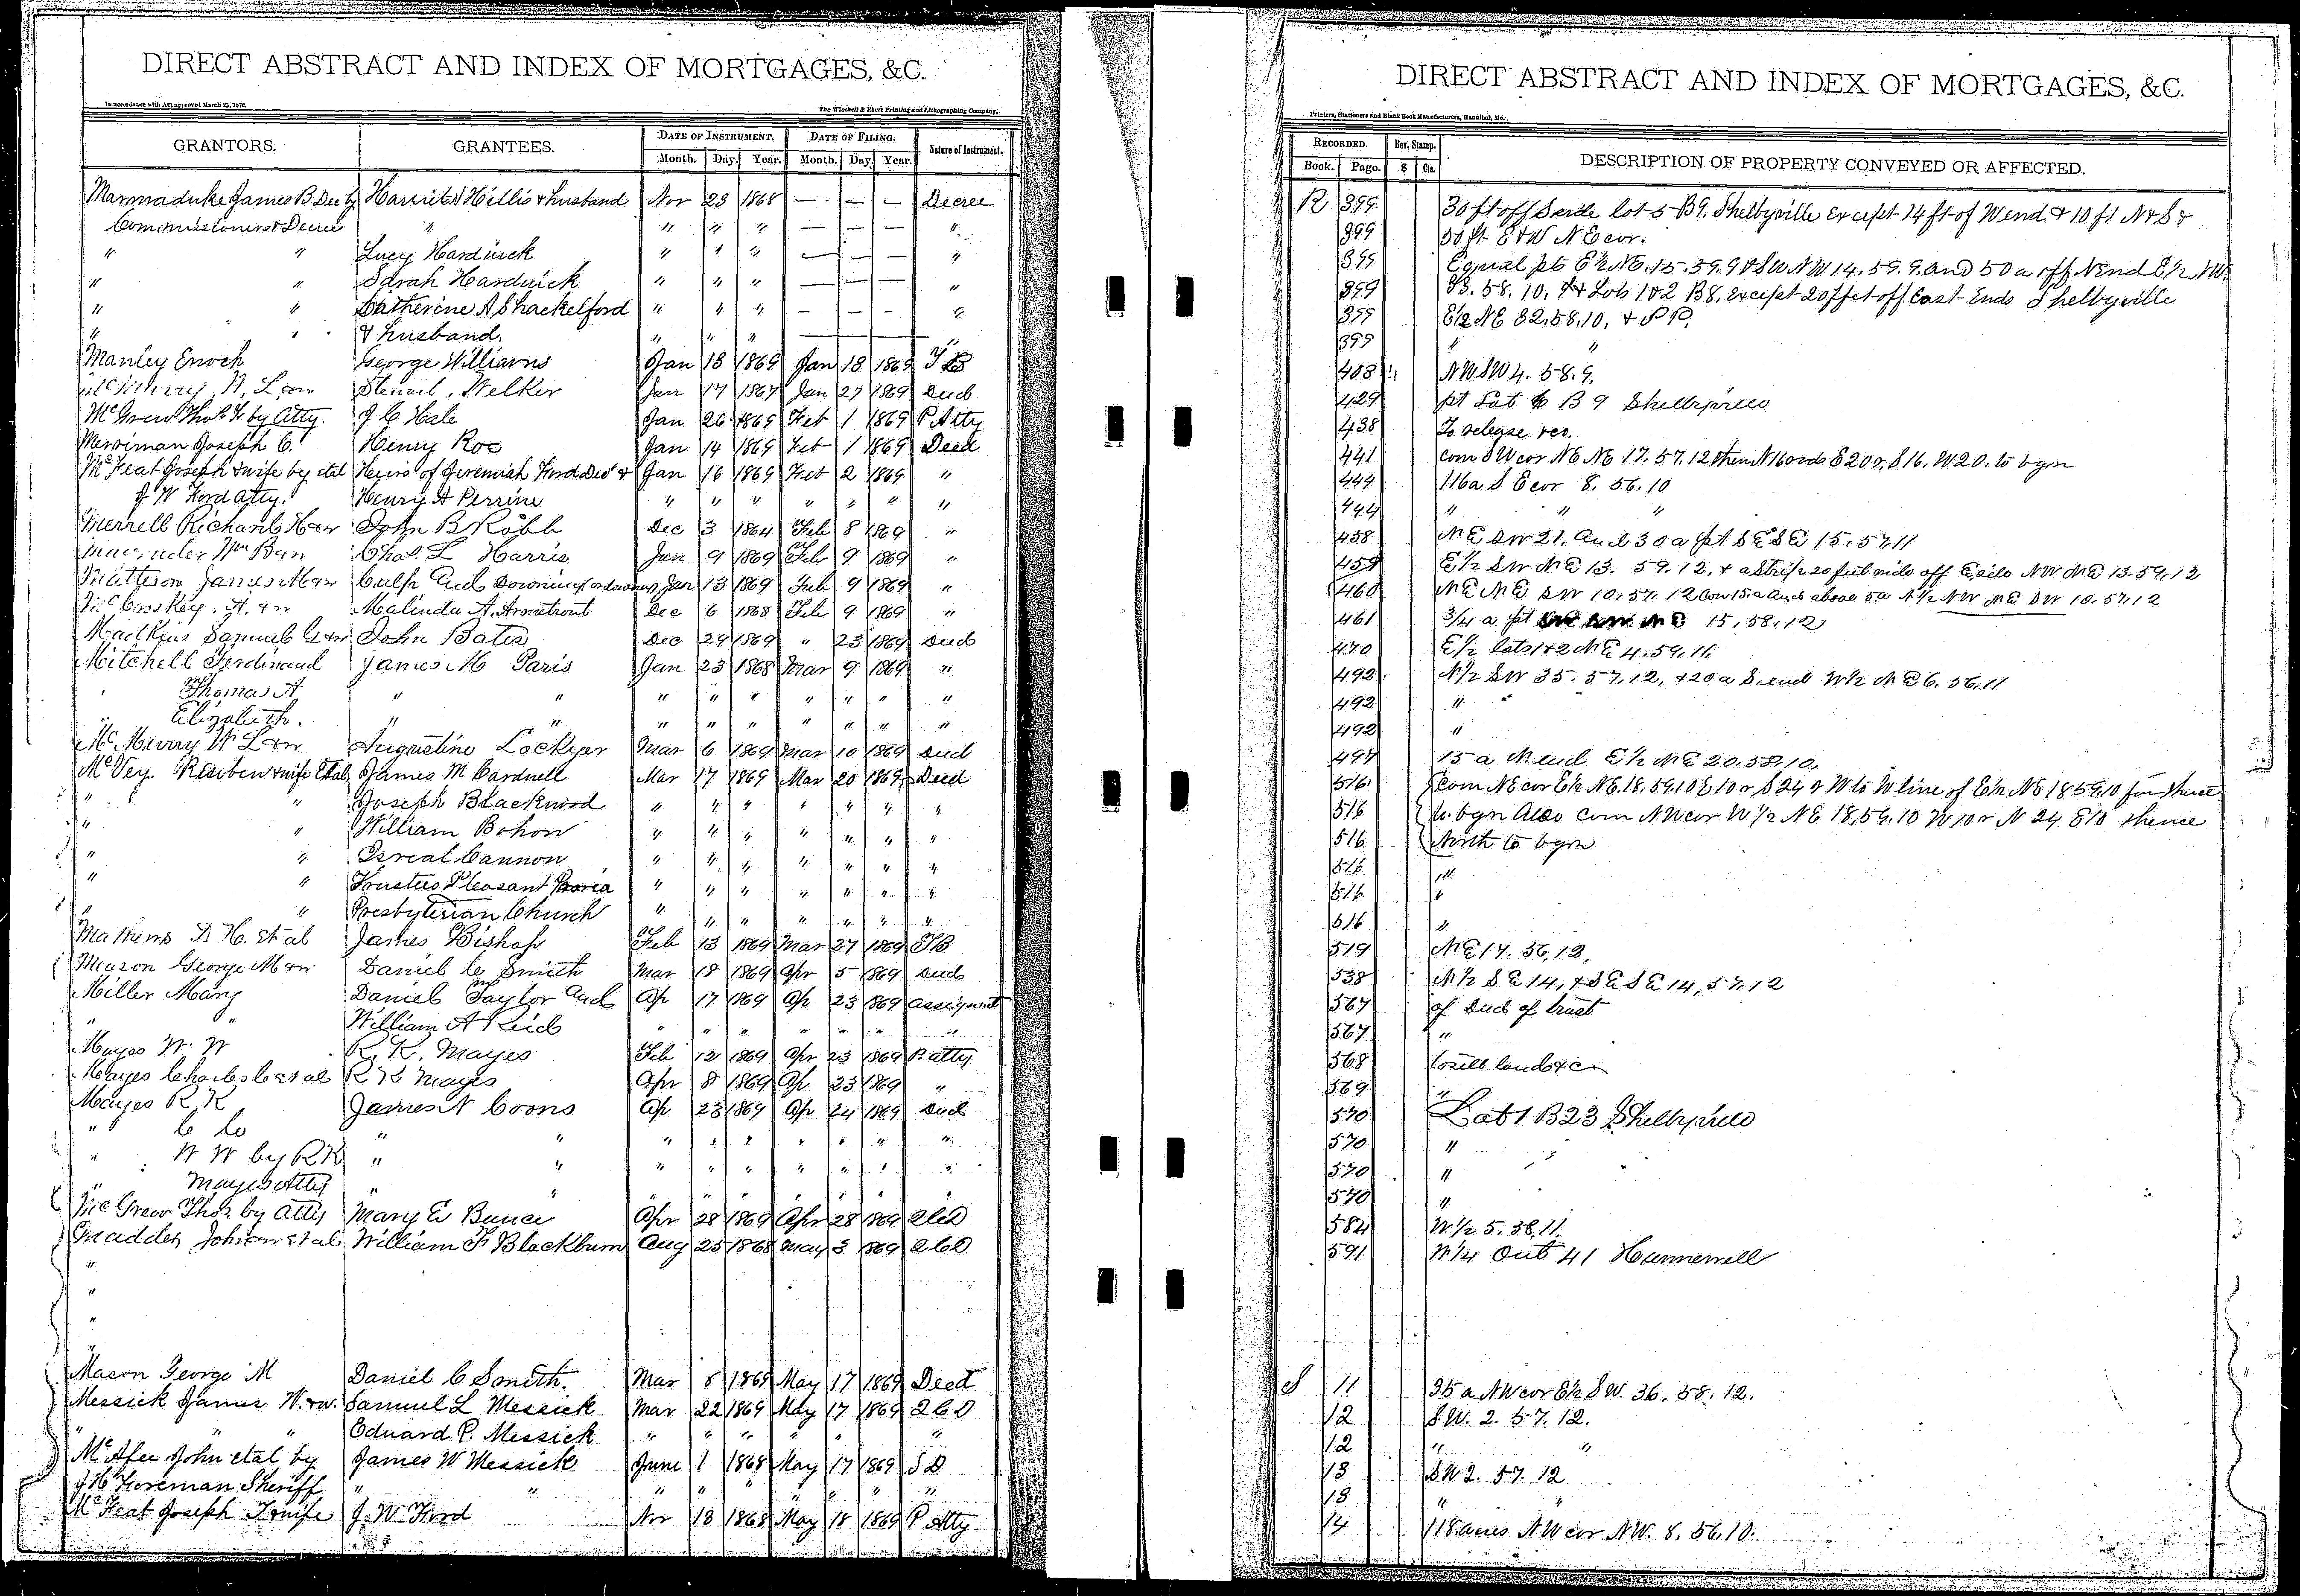 DIRECT ABSTRACT AND INDEX OF MORTGAGES, &C.
In accordance with Act approved March 25, 1870.
The Winchell & Ebert Printing and Lithographing Company,
GRANTORS. GRANTEES. DATE OF INSTRUMENT. DATE OF FILING. Nature of Instrument.
Month. Day. Year. Month. Day. Year.
Marmaduke James B Dec by Harriet Hillis & husband Nov 23 1868 — — — Decree
Commissioners Decree " " " " — — — "
" " Lucy Hardwick " " " — — — "
" " Sarah Hardwick " " " — — — "
" " Catherine A Shackelford " " " — — — "
" " & husband. " " " "
Manley Enoch George Williams Jan 18 1869 Jan 18 1869 T B
McMurry W. L & w Welker Jan 17 1867 Jan 27 1869 Deed
McGrew Thos F by Atty. J C Hale Jan 26 1869 Feb 1 1869 P Atty
Merriman Joseph C. Henry Roe Jan 14 1869 Feb 1 1869 Deed
Joseph & wife by etal Heirs of Jeremiah Ford Decd & Jan 16 1869 Feb 2 1869 "
J W Ford Atty. Henry A Perrine " " " " " " "
Merrell Richard H & w John B Robb Dec 3 1864 Feb 8 1869 "
Wm B & w Chas. L Harris Jan 9 1869 Feb 9 1869 "
Matteson James M & w Culp and Downing Jan 13 1869 Feb 9 1869 "
A. & w Malinda A. Armstrout Dec 6 1868 Feb 9 1869 "
Samuel G & w John Bates Dec 29 1869 " 23 1869 Deed
Mitchell Ferdinand James M Paris Jan 23 1868 Mar 9 1869 "
" Thomas A " " " " " " " " "
" Elizabeth. " " " " " " " " "
McMurry W L & w Augustine Lockyer Mar 6 1869 Mar 10 1869 Deed
McVey Reuben & wife Etal, James M Cardwell Mar 17 1869 Mar 20 1869 Deed
" " Joseph Blackwood " " " " " " "
" " William Bohon " " " " " " "
" " Isreal Cannon " " " " " " "
" " Trustees Pleasant Praria " " " " " " "
" " Presbyterian Church " " " " " " "
Mathews D H. et al James Bishop Feb 13 1869 Mar 27 1869 T B
Mason George M & w Daniel C Smith Mar 18 1869 Apr 5 1869 Deed
Miller Mary Daniel Taylor and Ap 17 1869 Ap 23 1869 Assignmt
" " William A Reid " " " " " " "
Mayes W. W R. K. Mayes Feb 12 1869 Apr 23 1869 P. Atty
Mayes Charles C et al R K Mayes Apr 8 1869 Ap 23 1869 "
Mayes R K James N Coons Ap 23 1869 Ap 24 1869 Deed
" C C " " " " " " " " "
" W W by R K " " " " " " " " "
" Mayes Atty " " " " " " " "
McGrew Thos by Atty Mary E Bunce Apr 28 1869 Apr 28 1869 2 C D
Madden John et al William F Blackburn Aug 25 1868 May 3 1869 2 C D
"
"
"
"
Mason George M Daniel C Smith. Mar 8 1869 May 17 1869 Deed
Messick James W. & w. Samuel L Messick Mar 22 1869 May 17 1869 2 C D
" " Edward P. Messick " " " " " "
McAfee John etal by James W Messick June 1 1868 May 17 1869 S D
J H Foreman Sheriff " " " " " " " "
Joseph & wife J. W. Ford Nov 13 1868 May 18 1869 P Atty
DIRECT ABSTRACT AND INDEX OF MORTGAGES, &C.
Printers, Stationers and Blank Book Manufacturers, Hannibal, Mo.
RECORDED. Rev. Stamp. DESCRIPTION OF PROPERTY CONVEYED OR AFFECTED.
Book. Page. $ Cts.
R 399 30 ft off S side lot 5 B 9. Shelbyville Except 14 ft of W end & 10 ft N & S &
399 50 ft E & W N E cor.
399 Equal pts E½ NE. 15. 59. 9 & SW NW 14. 59. 9. and 50 a off N end E½ NW.
399 33. 58. 10. & Lots 1 & 2 B 8. Except 20 feet off East Ends Shelbyville
399 E½ NE 32. 58. 10. & P P.
399 " "
408 NW SW 4. 58. 9.
429 pt Lot 6 B 9 Shelbyville
438 To release res.
441 com SW cor NE NE 17. 57. 12 then N 16 rods E 20 r, S 16. W 20. to bgn
444 116 a S E cor 8. 56. 10
444 " " "
458 NE SW 21. and 30 a pt SE SE 15. 57. 11
459 E½ SW NE 13. 59. 12. & a Strip 20 feet wide off E side NW NE 13. 59. 12
460 NE NE SW 10. 57. 12 Con 15 a and above 5 a N½ NW NE SW 10. 57. 12
461 3/4 a pt NE 15, 58, 12
470 E½ lots 1 & 2 NE 4. 59. 11
492 N½ SW 35. 57. 12, & 20 a S. end W½ NE 6. 56. 11
492 " "
492 "
497 15 a N end E½ NE 20. 58. 10.
516 com NE cor E½ NE. 18. 59. 10 E 10 r, S 24 r W to W line of E½ NE 18 59. 10 for thence
516 to bgn Also com NW cor. W½ NE 18, 59. 10 W 10 r N 24 E 10 thence
516 North to bgn
516 "
516 "
516 "
519 NE 17. 56, 12,
538 N½ S E 14, & SE SE 14, 57, 12
567 of Deed of trust
567 "
568 to sell lands &c
569 "
570 Lot 1 B 23 Shelbyville
570 "
570 "
570 "
584 W½ 5. 58, 11.
591 N¼ Out 41 Hunnewell
S 11 35 a NW cor E½ SW. 36. 58. 12.
12 S. W. 2. 57. 12.
12 " "
13 S W 2. 57. 12
13 " "
14 118 acres NW cor NW. 8. 56. 10.